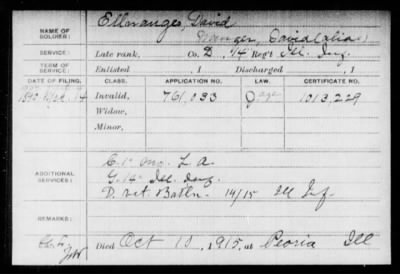 Elleranges, David
NAME OF SOLDIER:
Granger, David (alias)
SERVICE:
Late rank, Co. D, 14 Reg't Ill. Inf.
TERM OF SERVICE:
Enlisted , 1 Discharged , 1
DATE OF FILING.
CLASS.
APPLICATION NO.
LAW.
CERTIFICATE NO.
1890
Invalid,
761,033
1013,229
Widow,
Minor,
ADDITIONAL SERVICES:
C. 1" Mo. L. A.
G. 14" Ill. Inf.
D. Vet. Battn. 14/15 Ill Inf
REMARKS:
Died Oct 10, 1915, at Peoria Ill